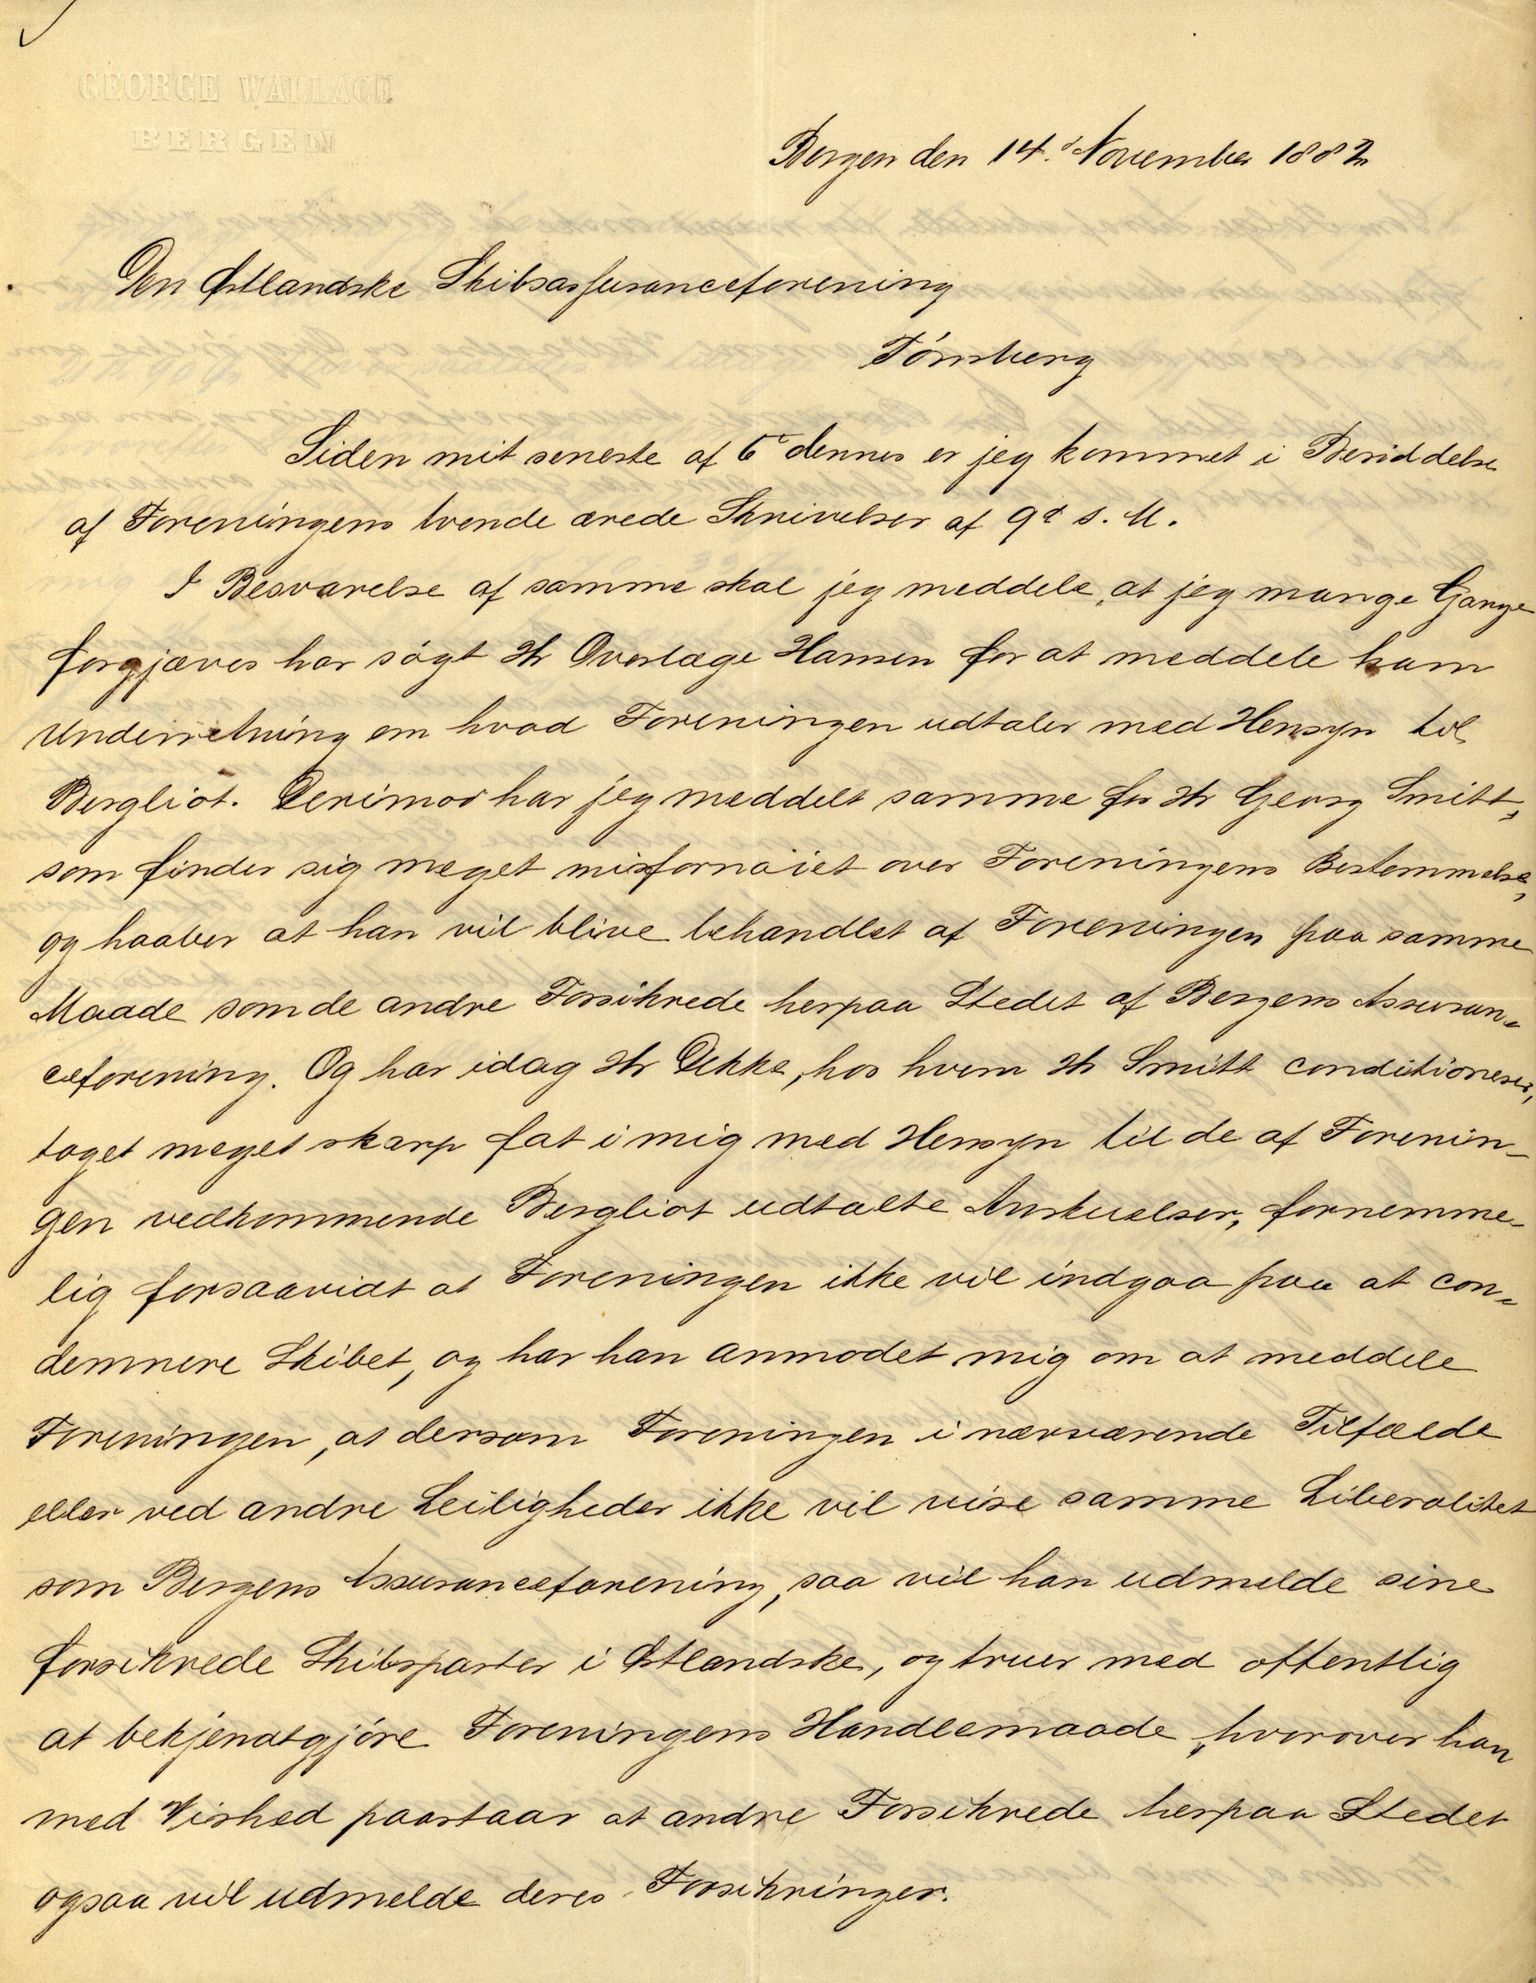 GEORGE WALLACH
BERGEN
Bergen den 14. November 1882
Den Østlandske Skibsassuranceforening
Tönsberg
Siden mit seneste af dennes er jeg kommet i Besiddelse
af Foreningens tvende ærede Skrivelser af 9d s. M.
I Besvarelse af samme skal jeg meddele, at jeg mange Gange
forgjæves har sögt Hr Overlæge Hansen for at meddele ham
Underretning om hvad Foreningen udtaler med Hensyn til
Bergliot. Derimod har jeg meddelt samme for Hr Georg Smitt,
som finder sig meget misfornöiet over Foreningens Bestemmelse,
og haaber at han vil blive behandlet af Foreningen paa samme
Maade som de andre Forsikrede herpaa Stedet af Bergens Assuran-
ceforening. Og har idag Hr Dekke, hos hvem Hr Smitt conditionerer,
taget meget skarp fat i mig med Hensyn til de af Forenin-
gen vedkommende Bergliot udtalte Anskuelser, fornemme-
lig forsaavidt at Foreningen ikke vil indgaa paa at con-
demnere Skibet, og har han anmodet mig om at meddele
Foreningen, at dersom Foreningen i nærværende Tilfælde
eller ved andre Leiligheder ikke vil vise samme Liberalitet
som Bergens Assuranceforening, saa vil han udmelde sine
forsikrede Skibsparter i Østlandske, og truer med offentlig
at bekjendtgjöre Foreningens Handlemaade, hvorover han
med Vished paastaar at andre Forsikrede herpaa Stedet
ogsaa vil udmelde deres Forsikringer.